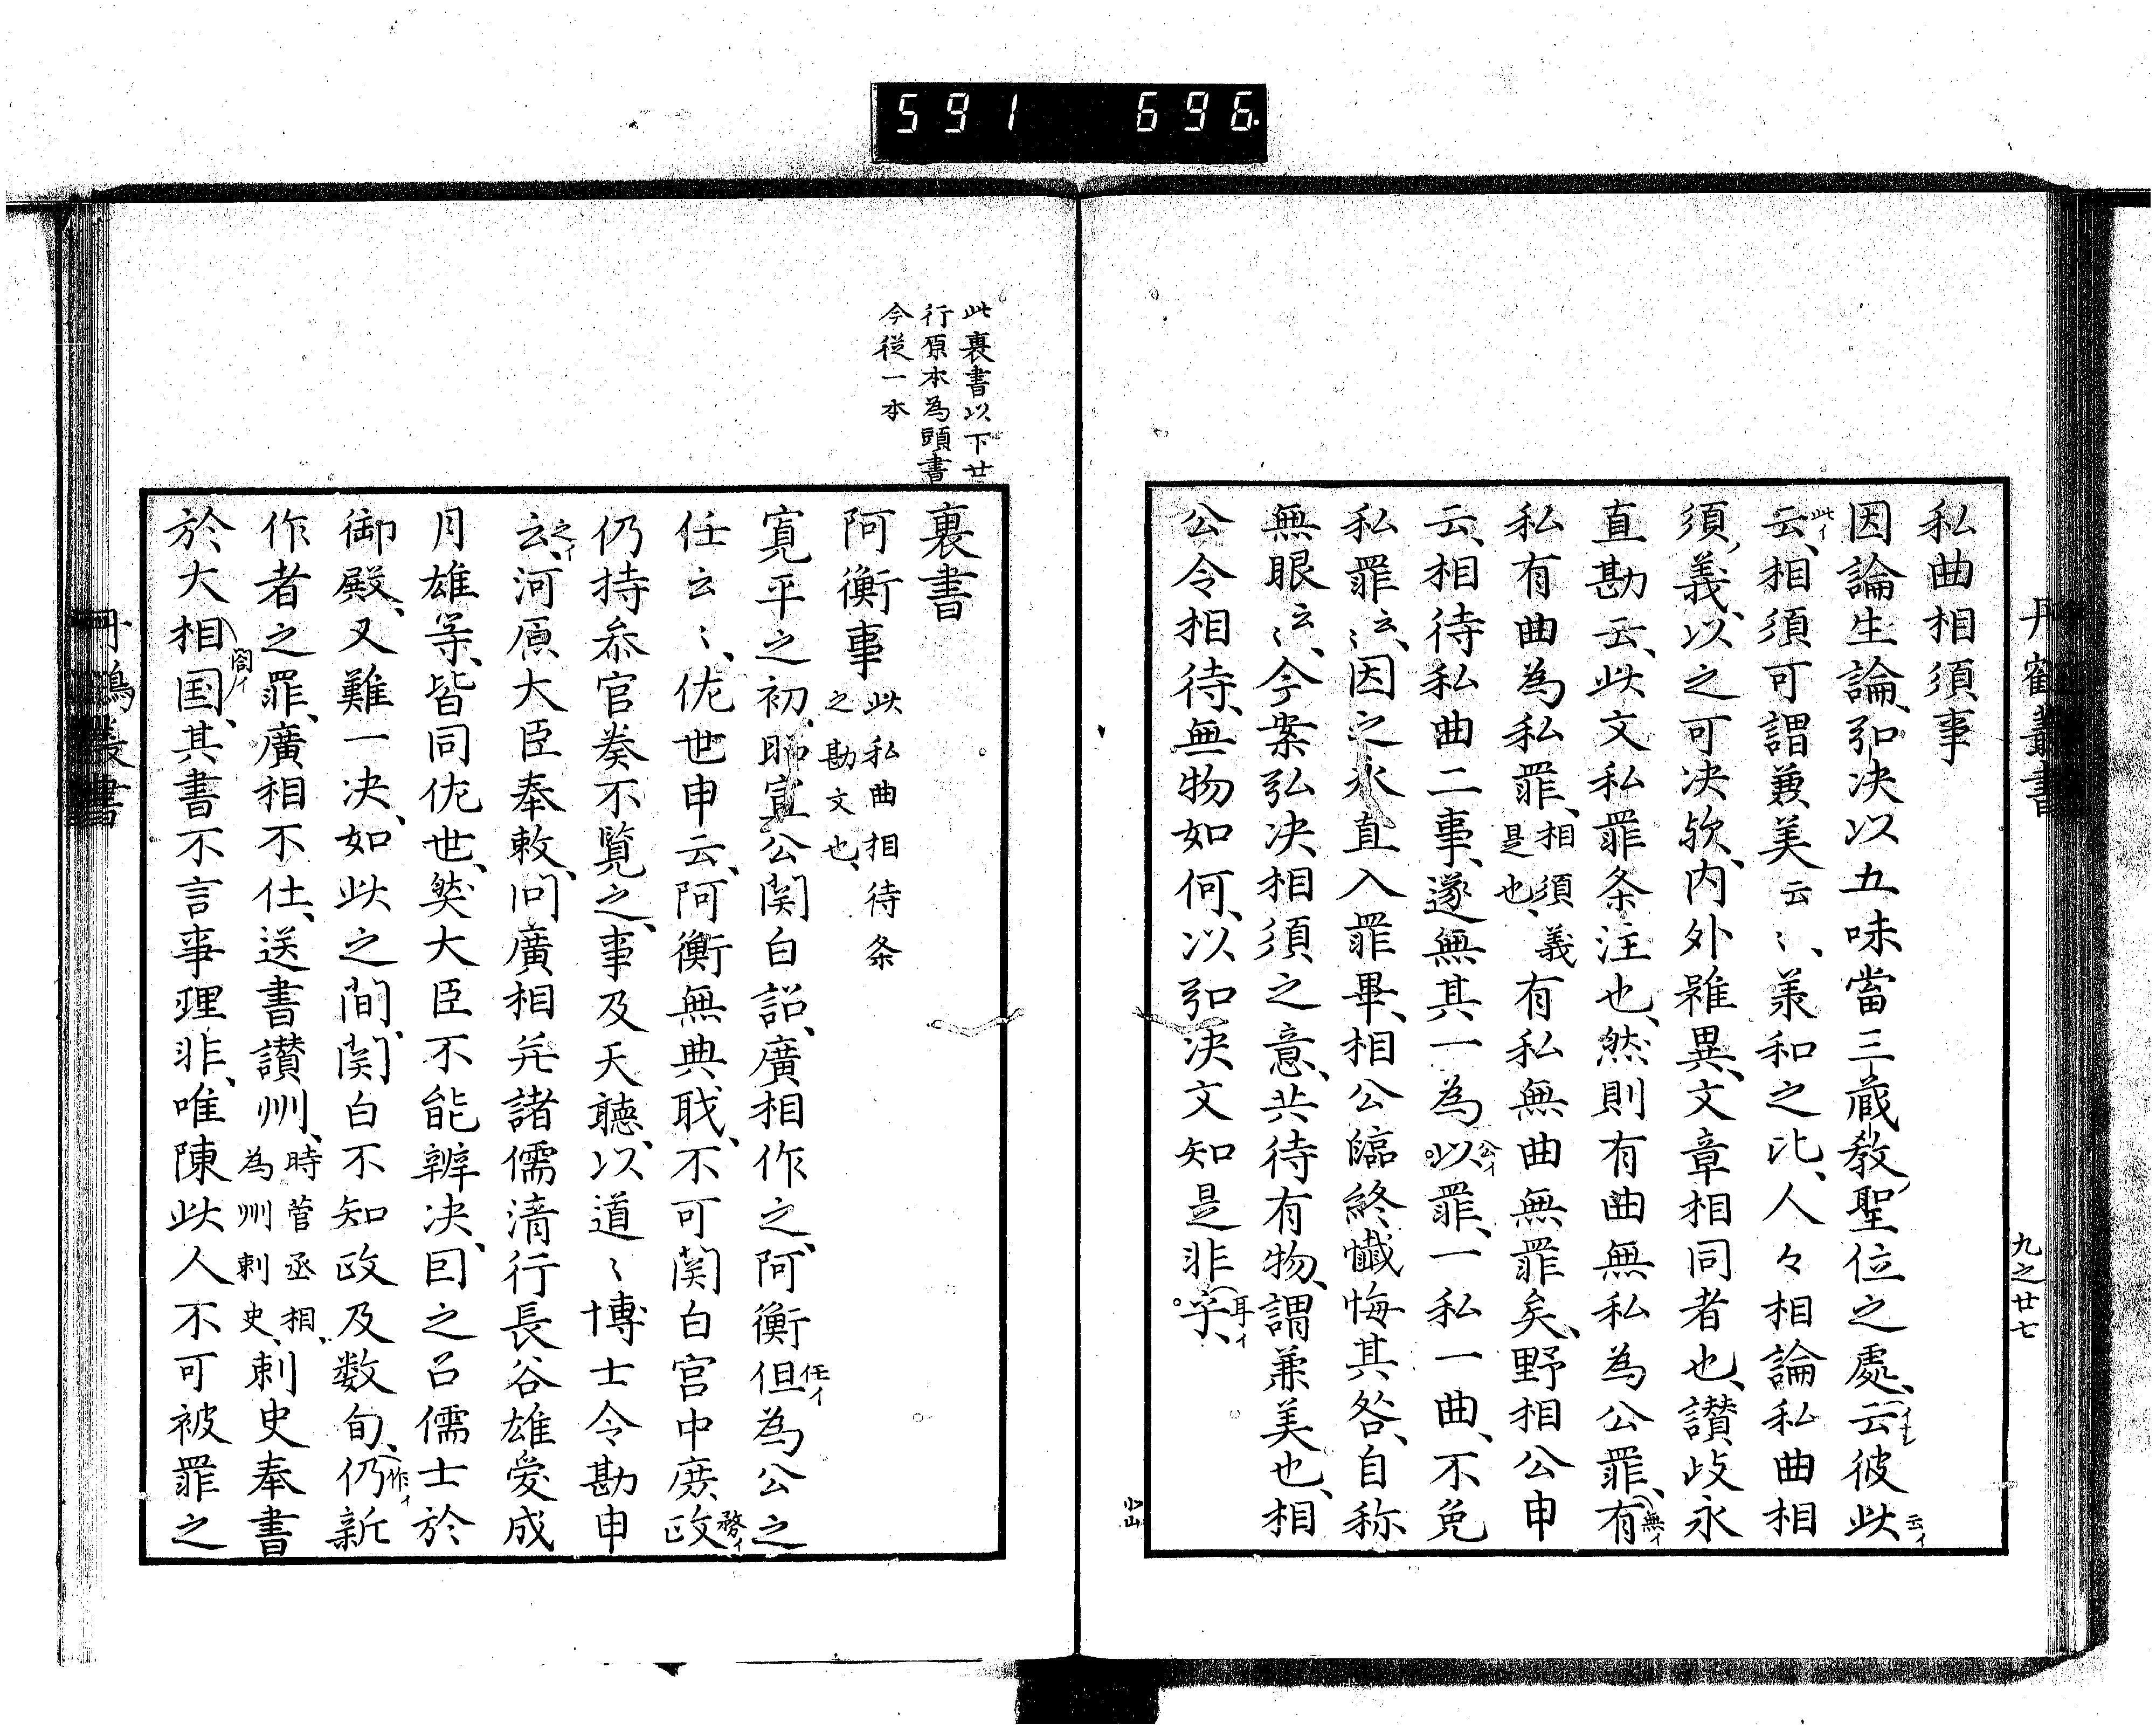 591 696
丹鶴叢書
九之廿七
私曲相須事
因論生論、弘决以五味當三蔵教聖位之處、云彼此
云、相須可謂兼美云〻、兼和之比、人々相論私曲相
須義、以之可决欤、内外雖異、文章相同者也、讃岐永
直勘云、此文私罪条注也、然則有曲無私為公罪、有
私有曲為私罪、相須義是也、有私無曲無罪矣、野相公申
云、相待私曲二事、遂無其一為以罪、一私一曲、不免
私罪云〻、因之永直入罪畢、相公臨終懺悔其咎、自称
無眼云〻、今案弘决相須之意、共待有物、謂兼美也、相
公令相待、無物如何、以弘决文知是非乎、
云イ
此イ
無イ
公イ
耳イ
此裏書以下廿
行原本為頭書
今従一本
裏書
阿衡事此私曲相待条之勘文也、
寛平之初、昭宣公関白詔、廣相作之、阿衡但為公之
任云〻、佐世申云、阿衡無典職、不可関白官中庶政
仍持参官奏不覧之、事及天聴、以道〻博士令勘申
云、河原大臣奉敕、問廣相并諸儒清行長谷雄愛成
月雄等、皆同佐世、然大臣不能辨决、因之召儒士於
御殿、又難一决、如此之間、関白不知政及数旬、仍新
作者之罪、廣相不仕、送書讃州、時菅丞相、為州刺史、刺史奉書
於大相国、其書不言事理非、唯陳此人不可被罪之
任イ
務イ
之イ
作イ
閤イ
丹鶴叢書